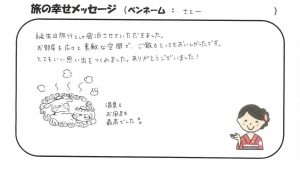 旅の幸せメッセージ （ペンネーム ： さとー ）
誕生日旅行として宿泊させていただきました。
お部屋も広々と素敵な空間で、ご飯もとってもおいしかったです。
とてもいい思い出をつくれました。ありがとうございました！
温泉も
お風呂も
最高でした！